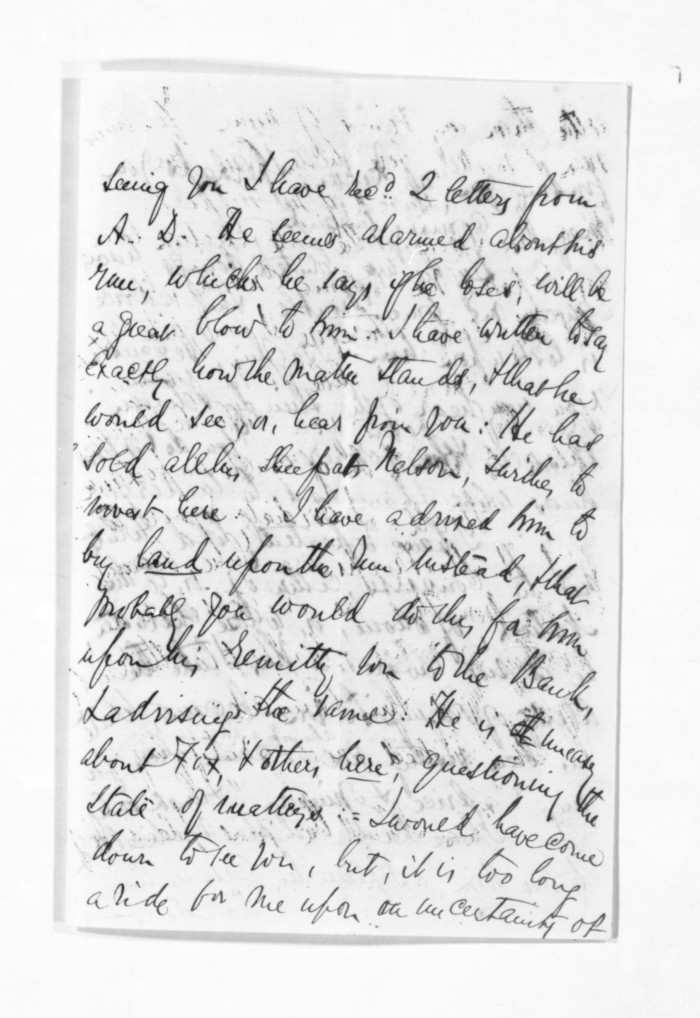 seeing you I have recd. 2 letters from
A. D. He seems alarmed about his
run, which he says if he loses, will be
a great blow to him. I have written to say
exactly how the matter stands, & that he
would see, or, hear from you: He has
sold all his sheep at Nelson, & wishes to
invest here. I have advised him to
buy land upon the run instead, & that
probably you would do this for him
upon his remitting you to the Bank,
& advising the same: He is uneasy
about Fox, & others here, questioning the
state of matters := I would have come
down to see you, but, it is too long
a ride for me upon an uncertainty of